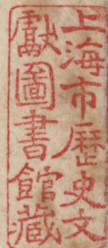 上海市歷史文
獻圖書館藏